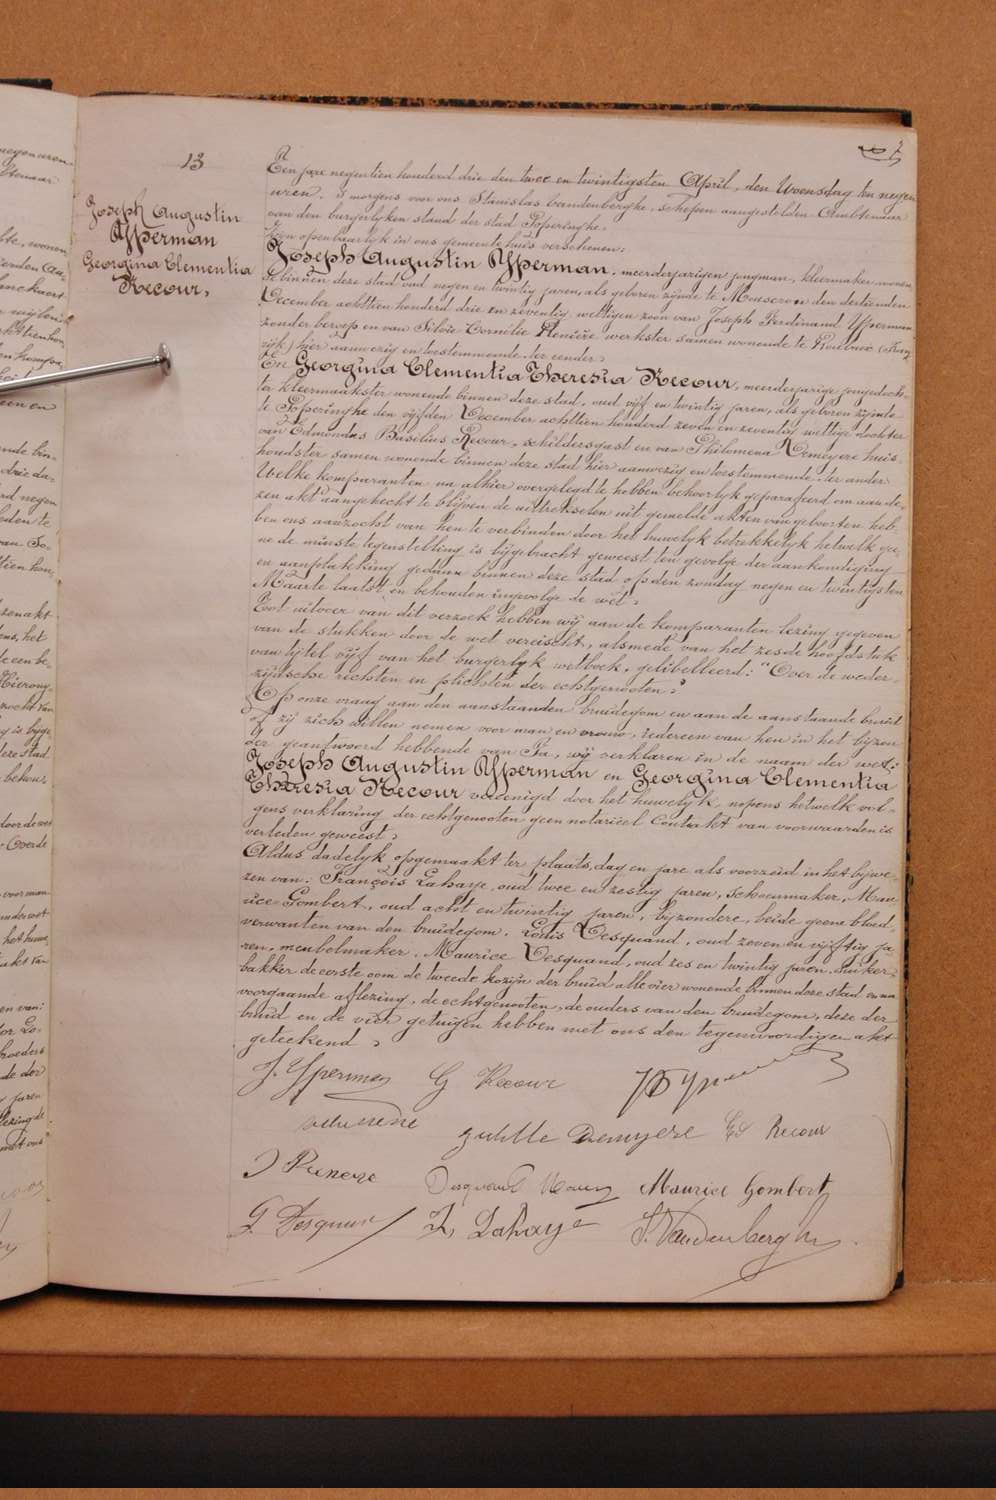 13
Joseph Augustin
Ypperman
Georgina Clementia
Recour,
7
Een jare negentien honderd drie den twee en twintigsten April, den Woensdag ten negen
uren, 's morgens voor ons Stanislas Vandenberghe, schepen aangestelden Ambtenaar
van den burgerlyken stand der stad Poperinghe,
Zyn openbaarlyk in ons gemeentehuis verschenen:
Joseph Augustin Ypperman, meerderjarigen jongman, kleermaker wonen
de binnen deze stad oud negen en twintig jaren, als geboren zynde te Mouscron den dertienden
December achttien honderd drie en zeventig wettigen zoon van Joseph Ferdinand Ypperman
zonder beroep en van Silvie Cornélie werkster samen wonende te Roubaix (Frank
ryk) hier aanwezig en toestemmende, ter eender,
En Georgina Clementia Theresia Recour, meerderjarige jongedoch
ter kleermaakster wonende binnen deze stad, oud vyf en twintig jaren, als geboren zynde
te Poperinghe den vyfden December achttien honderd zeven en zeventig wettige dochter
van Edmondus Basilius Recour, schildersgast en van Philomena Demeyere huis
houdster samen wonende binnen deze stad hier aanwezig en toestemmende, ter ander
Welke komparanten na alhier overgelegd te hebben behoorlyk geparafeerd om aan de
zen akt aangehecht te blyven de uittreksels uit gemelde akten van geboorten heb
ben ons aanzocht van hen te verbinden door het huwelyk betrekkelyk hetwelk gee
ne de minste tegenstelling is bygebracht geweest ten gevolge der aankondiging
en aanplakking gedaan binnen deze stad op den zondag negen en twintigsten
Maarte laatst, en behouden ingevolge de wet,
Tot uitvoer van dit verzoek hebben wy aan de komparanten lezing gegeven
van de stukken door de wet vereischt, alsmede van het zesde hoofdstuk
van tytel vyf van het burgerlyk wetboek, gelibelleerd: "Over de weder-
zydsche rechten en plichten der echtgenooten,"
Op onze vraag aan den aanstaanden bruidegom en aan de aanstaande bruid
of zy zich willen nemen voor man en vrouw, iedereen van hen in het byzon
der geantwoord hebbende van Ja, wy verklaren in de naam der wet:
Joseph Augustin Ypperman en Georgina Clementia
Theresia Recour vereenigd door het huwelyk, nopens hetwelk vol-
gens verklaring der echtgenooten geen notariëel Contrakt van voorwaarden is
verleden geweest,
Aldus dadelyk opgemaakt ter plaats, dag en jare als voorzeid in het bywe
zen van: François Lahaye, oud twee en zestig jaren, schoenmaker, Mau
rice Gombert, oud acht en twintig jaren, byzondere, beide geene bloed
verwanten van den bruidegom, Louis Desquand, oud zeven en vyftig ja
ren, meubelmaker, Maurice Desquand, oud zes en twintig jaren, suiker
bakker de eerste oom de tweede kozyn der bruid alle vier wonende binnen deze stad en na
voorgaande aflezing, de echtgenooten, de ouders van den bruidegom, deze der
bruid en de vier getuigen hebben met ons den tegenwoordigen akt
geteekend,
J. Ypperman G Recour
Demyere Ed Recour
Maurice Gombert
L Desquand F. Lahaye S. Vandenberghe